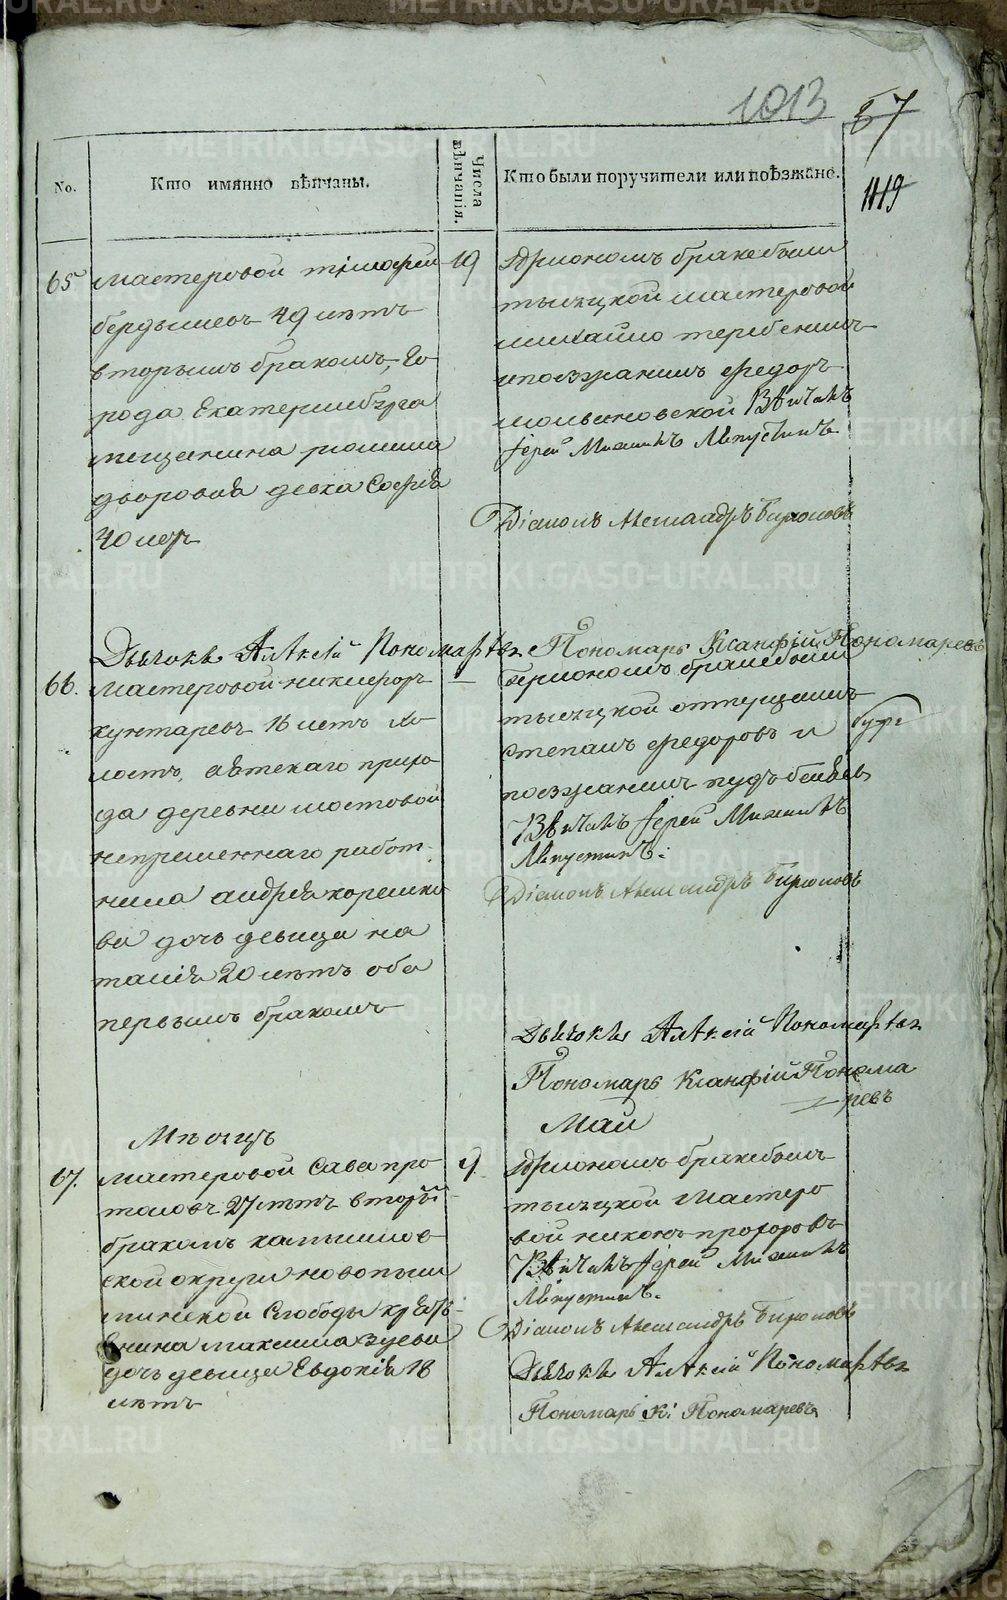 1013
57
1119
No.
Кто имянно вѣнчаны.
Числа вѣнчанія.
Кто были поручители или поѣзжане.
65
мастеровой тімофей
бердышевъ 49 лѣтъ
вторымъ бракомъ, го
рода Екатеринбурга
мещанина
дворовая девка Софія
40 лѣтъ
19
бракебыли
тысяцкой мастеровой
михайло теребенинъ
ипоезжанинъ федоръ
Вѣнчалъ
Іерей Михаилъ Августинъ
Діаконъ Александръ Бирюковъ
Дьячокъ Алѣксій Пономарѣвъ
Пономарь Ксанфій Пономаревъ
66.
мастеровой никифоръ
кунгаревъ 18 летъ хо
лостъ,
прихо
да деревни мостовой
непременнаго работ
ника андрея корелина
ва дочь девица на
талія 20 лѣтъ оба
первымъ бракомъ
—
бракебыли
тысяцкой
Степанъ федоровъ и
поезжанинъ
Вѣнчалъ Іерей Михаилъ
Августинъ.
Діаконъ Александръ Бирюковъ
Дьячокъ Алѣксій Пономарѣвъ
Пономарь Ксанфій Понома
ревъ
Мѣсяцъ
Маи
67.
мастеровой Сава про
таловъ 27 лѣтъ вторы
бракомъ камышлов
ской округи новопыш
минской Слободы крестья
нина максима зуева
дочь девица Евдокія 18
лѣтъ
9
бракебылъ
тысяцкой мастеро
вой никонъ прохоровъ
Вѣнчалъ Іерей Михаилъ
Августинъ.
Діаконъ Александръ Бирюковъ
Дьячокъ Алѣксій Пономарѣвъ
Пономарь К: Пономаревъ
METRIKI.GASO-URAL.RU